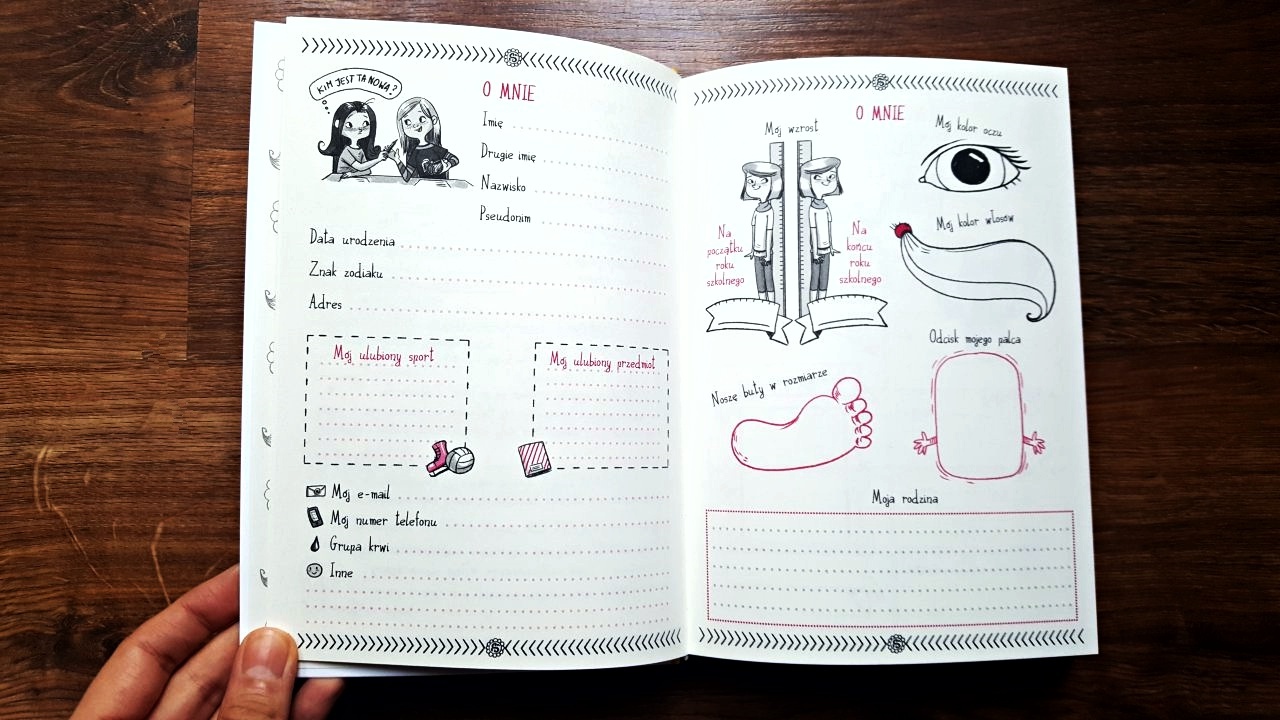 KIM JEST TA NOWA?
O MNIE
Imię
Drugie imię
Nazwisko
Pseudonim
Data urodzenia
Znak zodiaku
Adres
Mój ulubiony sport
Mój ulubiony przedmiot
Mój e-mail
Mój numer telefonu
Grupa krwi
Inne
O MNIE
Mój wzrost
Na
początku
roku
szkolnego
Na
końcu
roku
szkolnego
Mój kolor oczu
Mój kolor włosów
Noszę buty w rozmiarze
Odcisk mojego palca
Moja rodzina